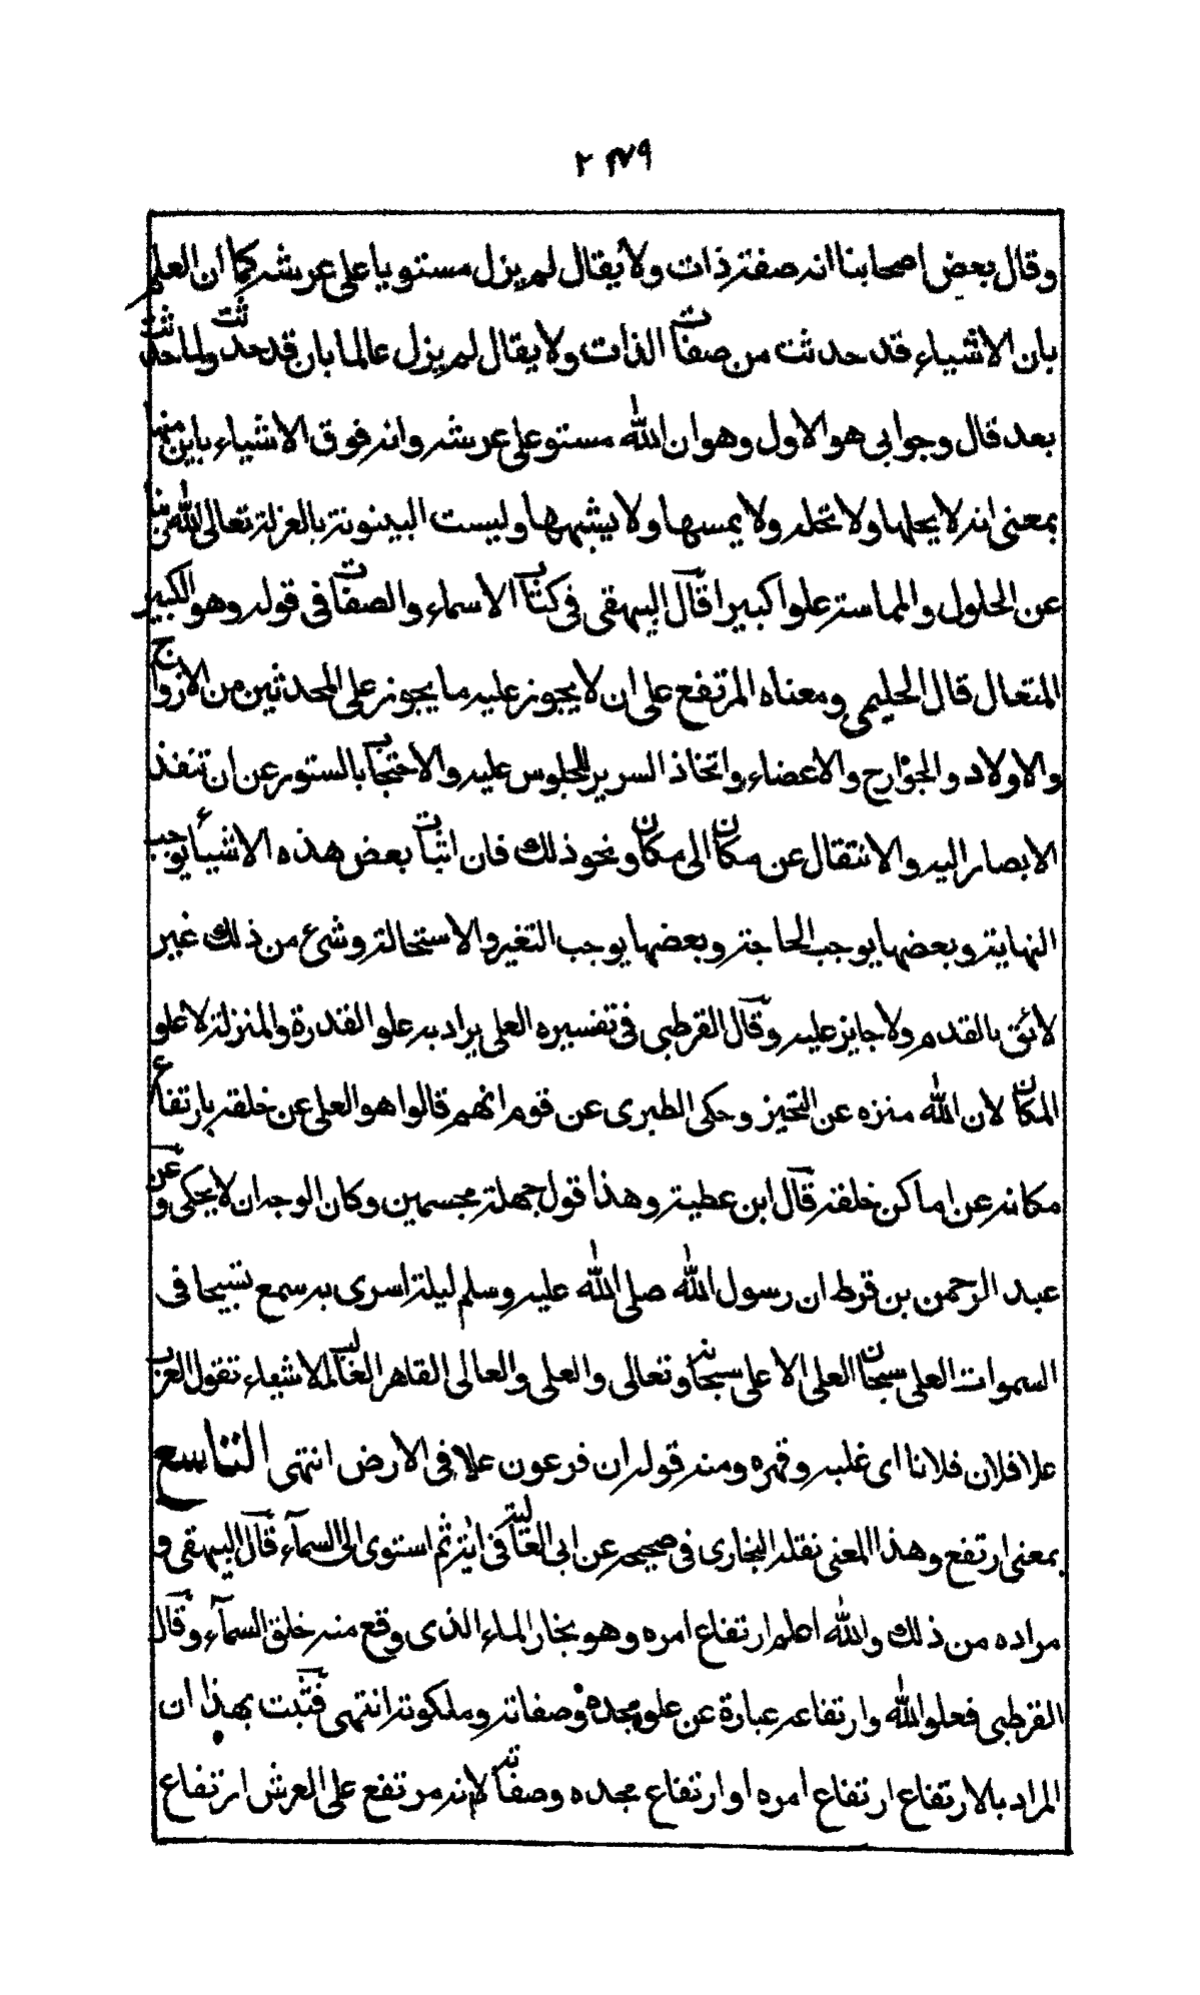 ٢٣٧٩
وقال بعض اصحابنا انه صفة ذات ولا يقال لم يزل مستويا على عرشه كما ان العلم
بان الاشياء قد حدثت من صفات الذات ولا يقال لم يزل عالما بان قد حدثت ولما حدثت
بعد قال وجوابى هو الاول وهو ان الله مستو على عرشه وانه فوق الاشياء باين منها
بمعنى انه لا يحلها ولا تحله ولا يمسها ولا يشبهها وليست البينونة بالعزلة تعالى الله ربنا
عن الحلول والمماسة علوا كبيرا قال البيهقى فى كتاب الاسماء والصفات فى قوله وهو الكبير
المتعال قال الحليمى ومعناه المرتفع على ان لا يجوز عليه ما يجوز على المحدثين من الازواج
والاولاد والجوارح والاعضاء واتخاذ السرير للجلوس عليه والاحتجاب بالستور عن ان تنفذ
الابصار اليه والانتقال عن مكان الى مكان ونحو ذلك فان اثبات بعض هذه الاشياء يوجب
النهاية وبعضها يوجب الحاجة وبعضها يوجب التغير والاستحالة وشئ من ذلك غير
لائق بالقديم ولا جايز عليه وقال القرطبى فى تفسيره العلى يراد به علو القدرة والمنزلة لا علو
المكان لان الله منزه عن التحيز وحكى الطبرى عن قوم انهم قالوا هو العلى عن خلقه بارتفاع
مكانه عن اماكن خلقه قال ابن عطية وهذا قول جهلة مجسمين وكان الوجه ان لا يحكى وعن
عبد الرحمن بن قرط ان رسول الله صلى الله عليه وسلم ليلة اسرى به سمع تسبيحا فى
السموات العلى سبحان العلى الاعلى سبحانه وتعالى والعلى والعالى القاهر الغالب للاشياء تقول العرب
علا فلان فلانا اى غلبه وقهره ومنه قوله ان فرعون علا فى الارض انتهى التاسع
بمعنى ارتفع وهذا المعنى نقله البخارى فى صحيحه عن ابى العالية فى اية ثم استوى الى السمآء قال البيهقى و
مراده من ذلك والله اعلم ارتفاع امره وهو بخار الماء الذى وقع منه خلق السمآء وقال
القرطبى فعلو الله وارتفاعه عبارة عن علو مجده وصفاته وملكوته انتهى فثبت بهذا ان
المراد بالارتفاع ارتفاع امره او ارتفاع مجده وصفاته لا نه مرتفع على العرش ارتفاع